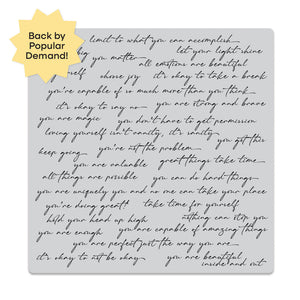 Back by
Popular
Demand!
limit to what you can accomplish
big
let your light shine
you matter
all emotions are beautiful
yourself
choose joy
it's okay to take a break
you're capable of so much more than you think
it's okay to say no
you are strong and brave
you are magic
you don't have to get permission
loving yourself isn't vanity, it's sanity
you got this
keep going
you're not the problem
you are valuable
great things take time
all things are possible
you can do hard things
you are uniquely you and no one can take your place
you're doing great!
take time for yourself
hold your head up high
nothing can stop you
you are enough
you are capable of amazing things
you are perfect just the way you are
it's okay to not be okay
you are beautiful
inside and out